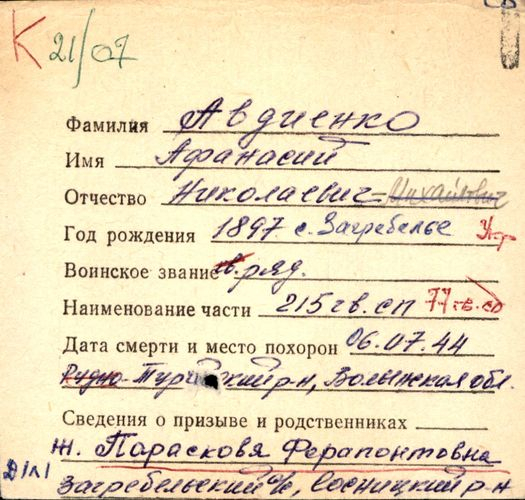 К 21/07
Фамилия Авдиенко
Имя Афанасий
Отчество Николаевич Михайлович
Год рождения 1897 с. Загребелье Укр
Воинское звание гв. ряд.
Наименование части 215 гв. сп 77 гв. сд
Дата смерти и место похорон 06.07.44
Рудно Турийский р-н, Волынская обл.
Сведения о призыве и родственниках
ж. Парасковя Ферапонтовна
Загребельский с/с, Сосницкий р-н